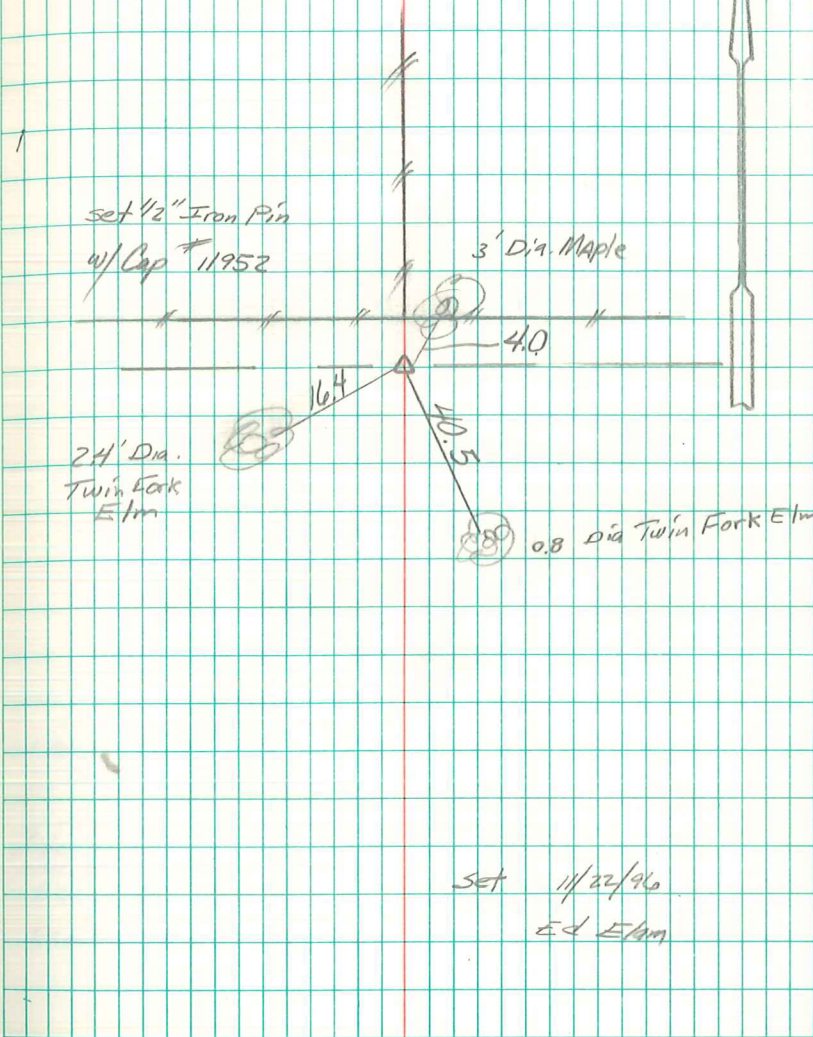 set 1/2" Iron Pin
w/ Cap # 11952
3' Dia. Maple
4.0
16.4
40.5
2.4' Dia.
Twin Fork
Elm
0.8 Dia Twin Fork Elm
set 11/22/96
Ed Elam